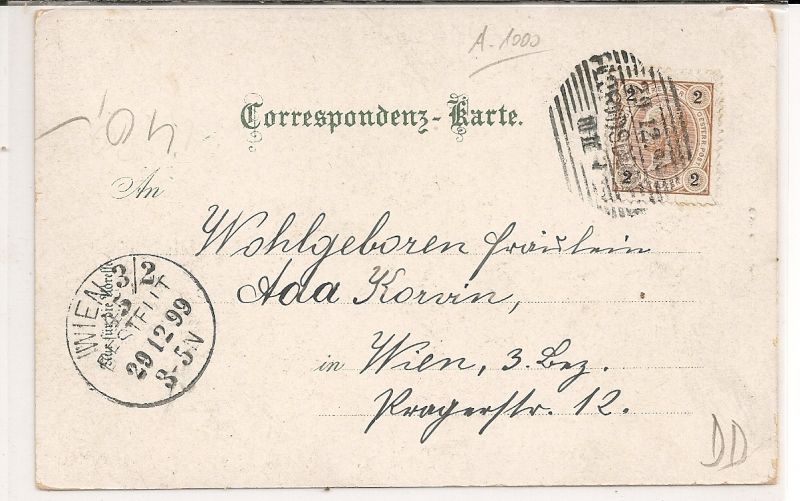 A. 1000
Correspondenz-Karte.
An
Wohlgeboren Fräulein
Ada Korvin,
in Wien, 3. Bez.
Pragerstr. 12.
2
2
2
2
OESTERR. POST
WIEN 3/2
BESTELLT
29 12 99
3-5 N
Nur für die Adresse
DD